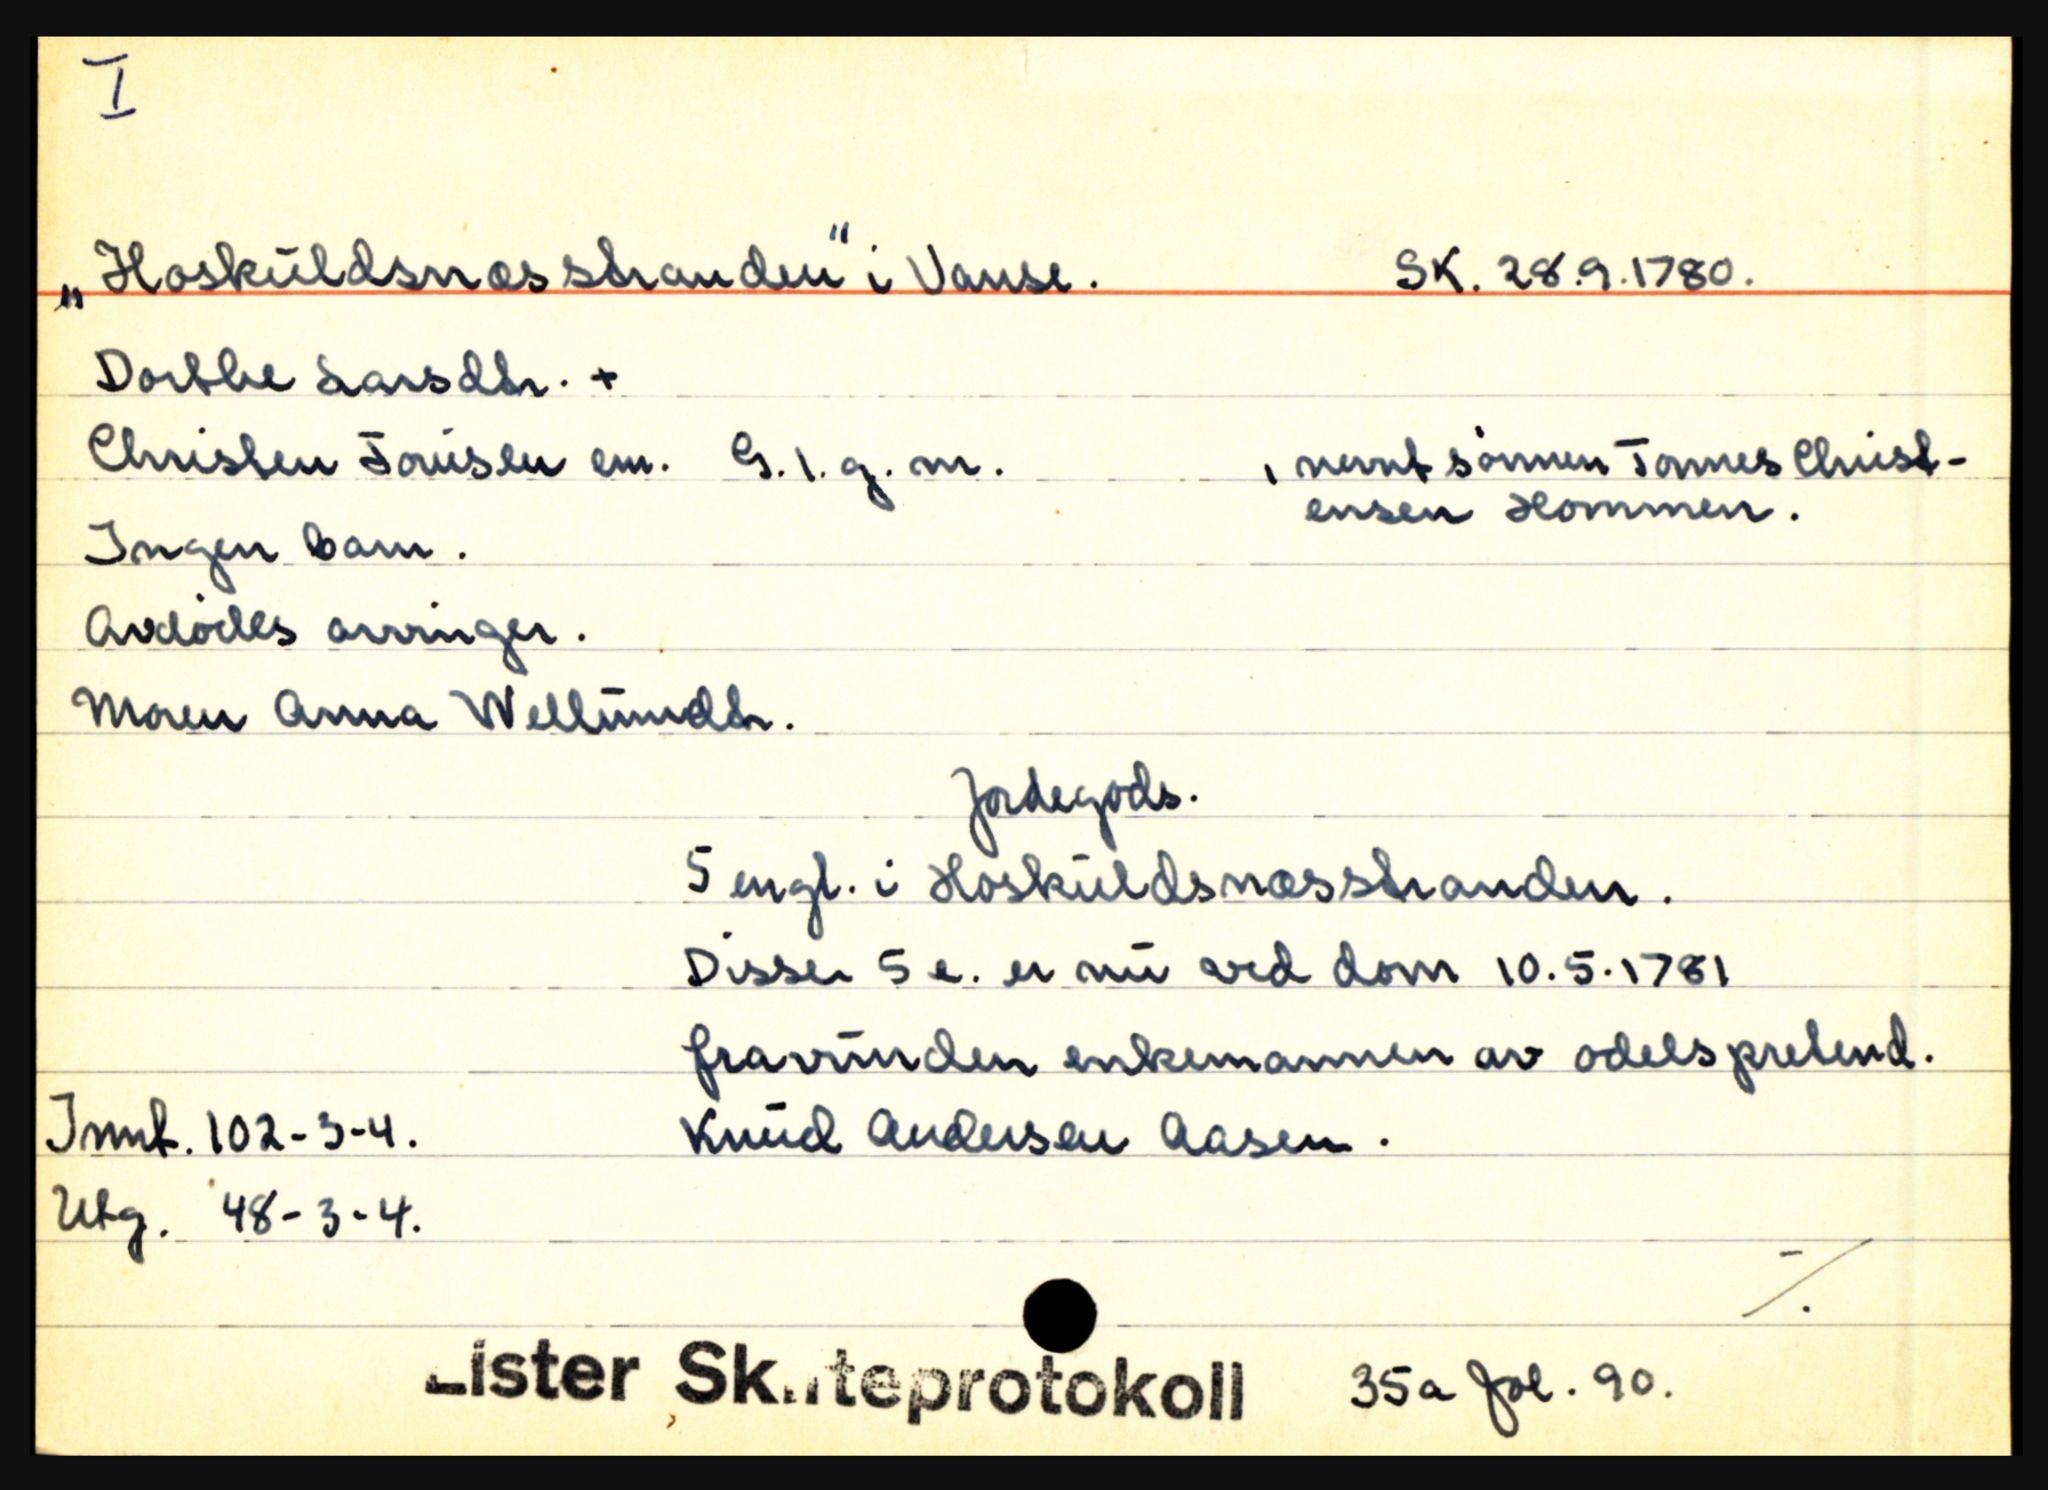 I
„Hoskūldsnæsstranden" i Vanse. SK. 28.9.1780.
Dorthe Larsdtr. +
Christen Tōnisen em. G. 1. g. m. , nevnt sönnen Tönnes Christ-
ensen Hommen.
Ingen barn.
Avdödes arvinger.
Moren Anna Wellūmdtr.
Jordegods.
5 engl. i Hoskūldsnæsstranden.
Disse 5 e. er nū ved dom 10.5.1781
fravūnden enkemannen av odelspretend.
Innt. 102-3-4. Knūd Andersen Aasen.
Utg. 48-3-4.
./.
Lister Skifteprotokoll 35a fol. 90.